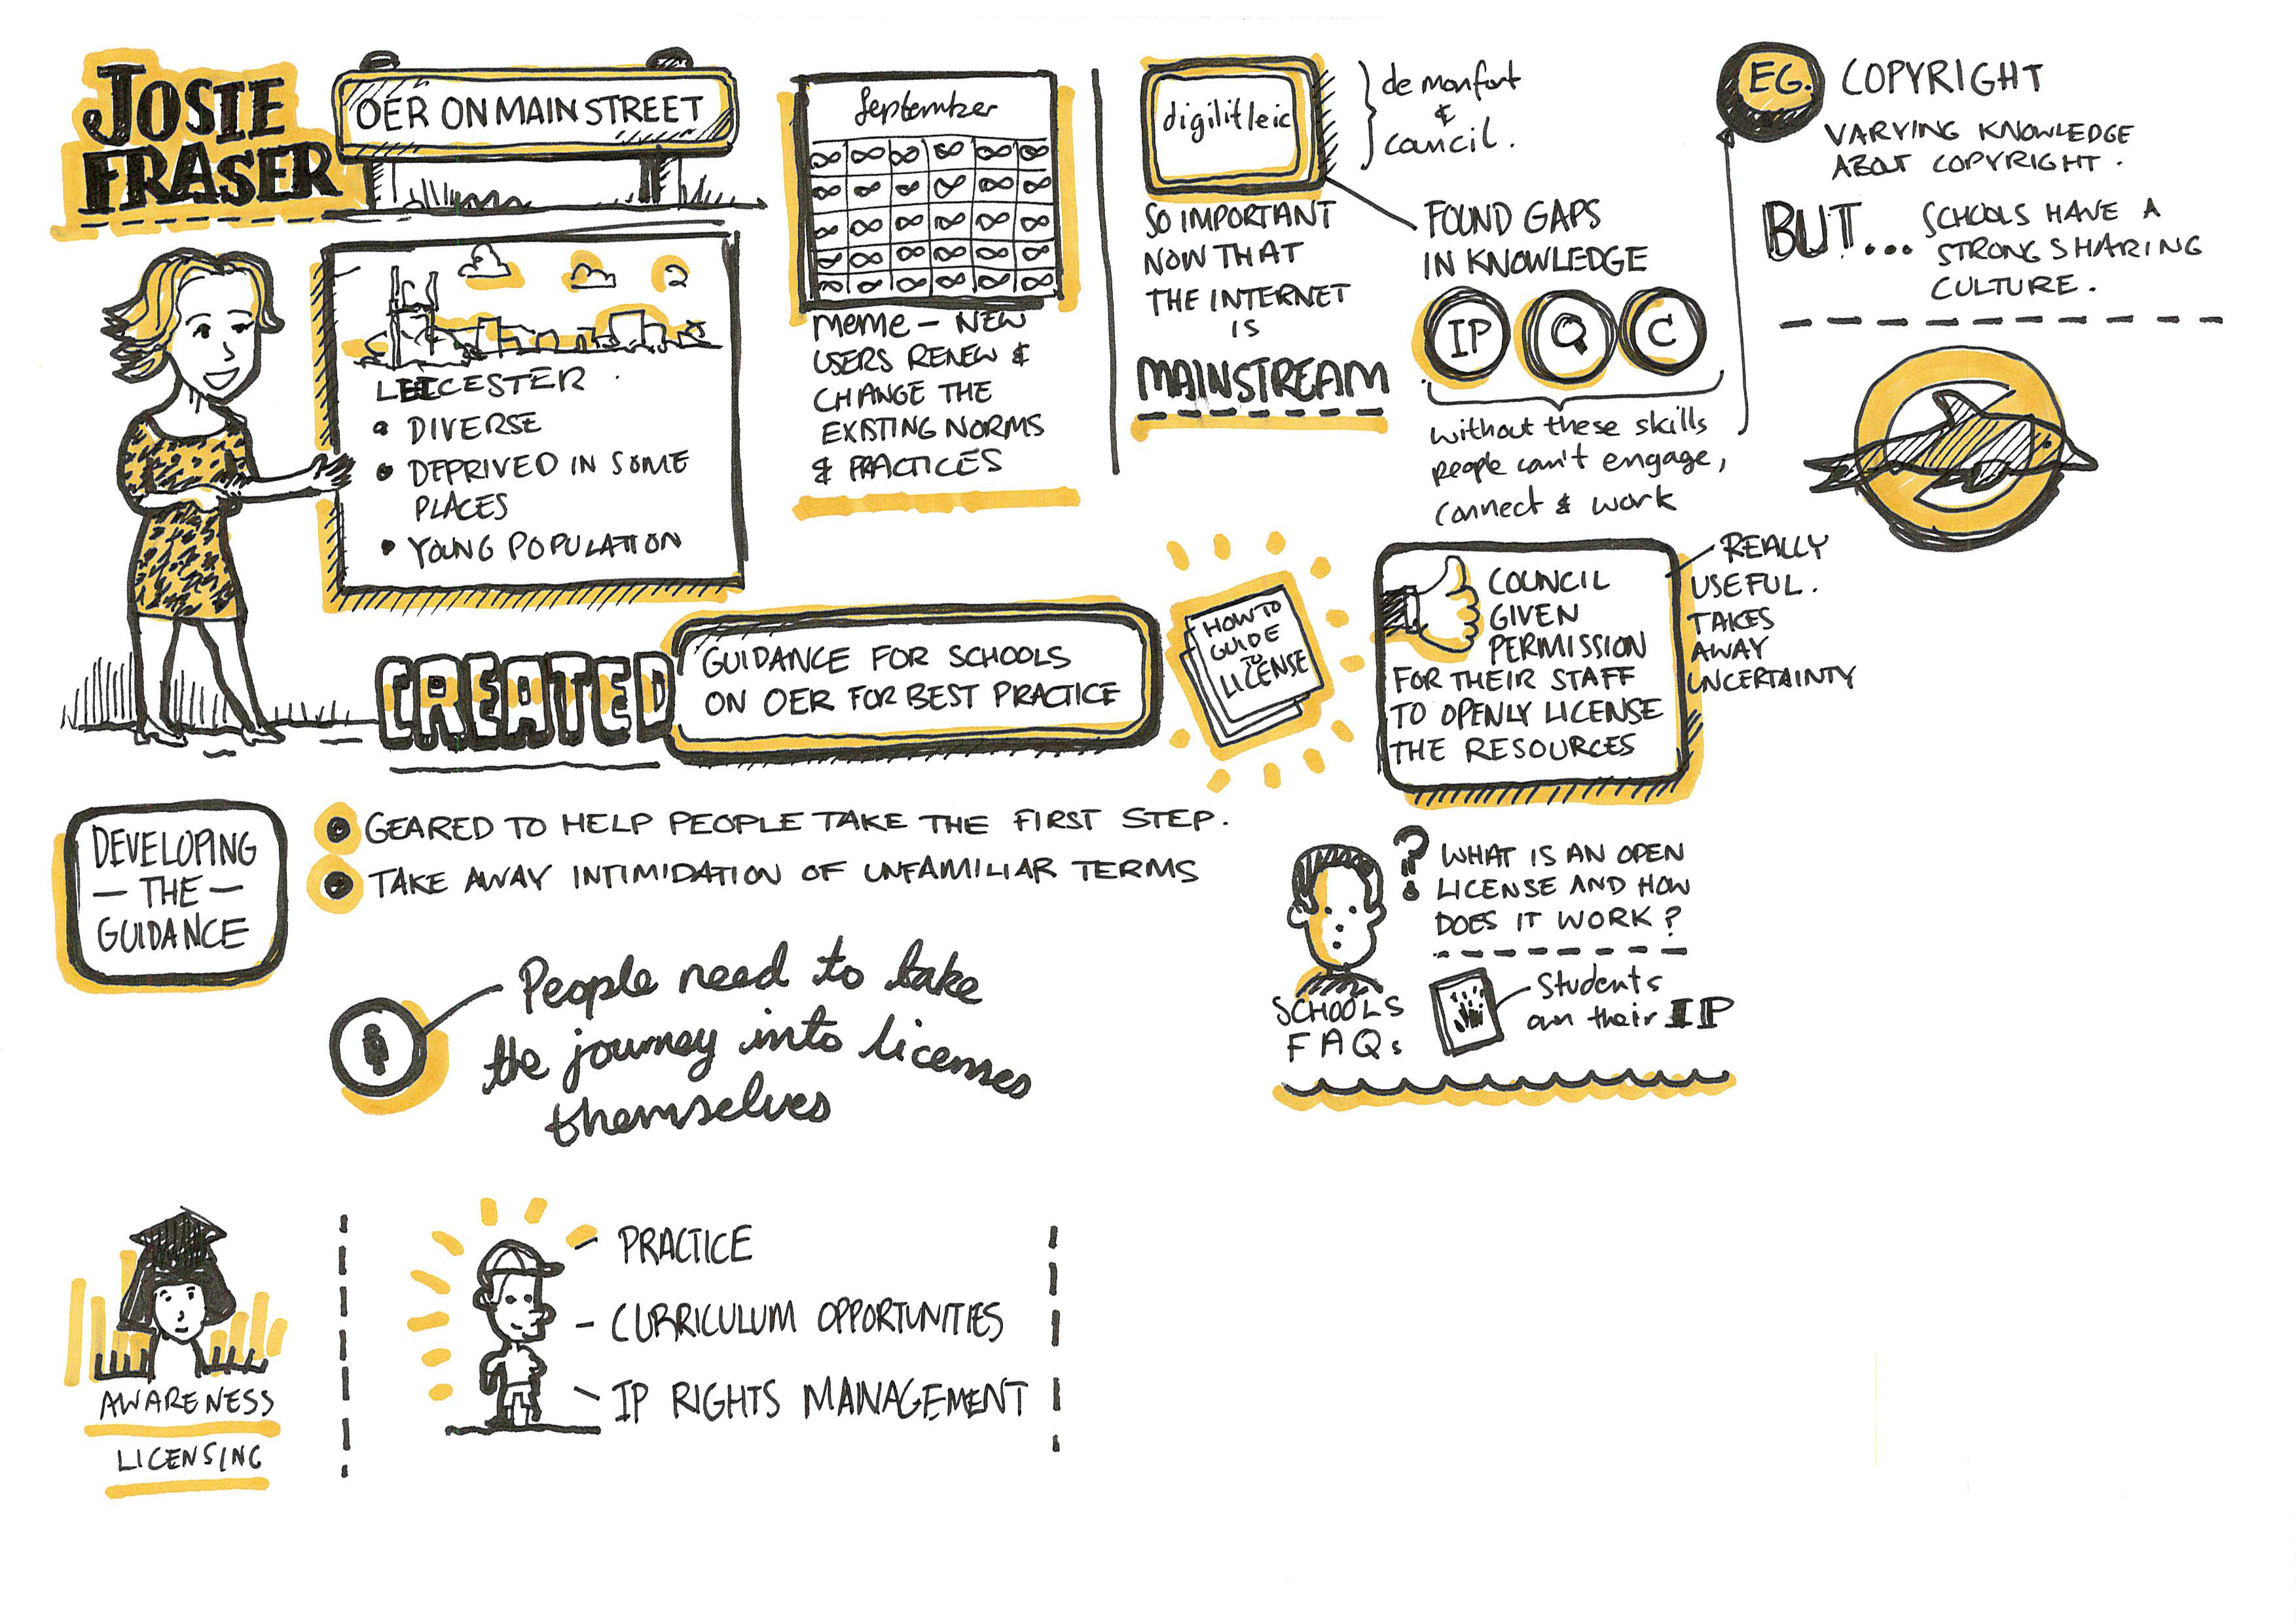 JOSIE
FRASER
OER ON MAIN STREET
LEICESTER
• DIVERSE
• DEPRIVED IN SOME
PLACES
• YOUNG POPULATION
September
meme - NEW
USERS RENEW &
CHANGE THE
EXISTING NORMS
& PRACTICES
digilitleic
de monfort
&
council.
SO IMPORTANT
NOW THAT
THE INTERNET
IS
MAINSTREAM
FOUND GAPS
IN KNOWLEDGE
IP Q C
without these skills
people can't engage,
connect & work
EG. COPYRIGHT
VARYING KNOWLEDGE
ABOUT COPYRIGHT.
BUT... SCHOOLS HAVE A
STRONG SHARING
CULTURE.
CREATED
GUIDANCE FOR SCHOOLS
ON OER FOR BEST PRACTICE
HOW TO
GUIDE
TO
LICENSE
COUNCIL
GIVEN
PERMISSION
FOR THEIR STAFF
TO OPENLY LICENSE
THE RESOURCES
REALLY
USEFUL.
TAKES
AWAY
UNCERTAINTY
DEVELOPING
- THE -
GUIDANCE
GEARED TO HELP PEOPLE TAKE THE FIRST STEP.
TAKE AWAY INTIMIDATION OF UNFAMILIAR TERMS
People need to take
the journey into licenses
themselves
SCHOOLS
FAQs
? WHAT IS AN OPEN
LICENSE AND HOW
DOES IT WORK?
Students
own their IP
AWARENESS
LICENSING
- PRACTICE
- CURRICULUM OPPORTUNITIES
- IP RIGHTS MANAGEMENT